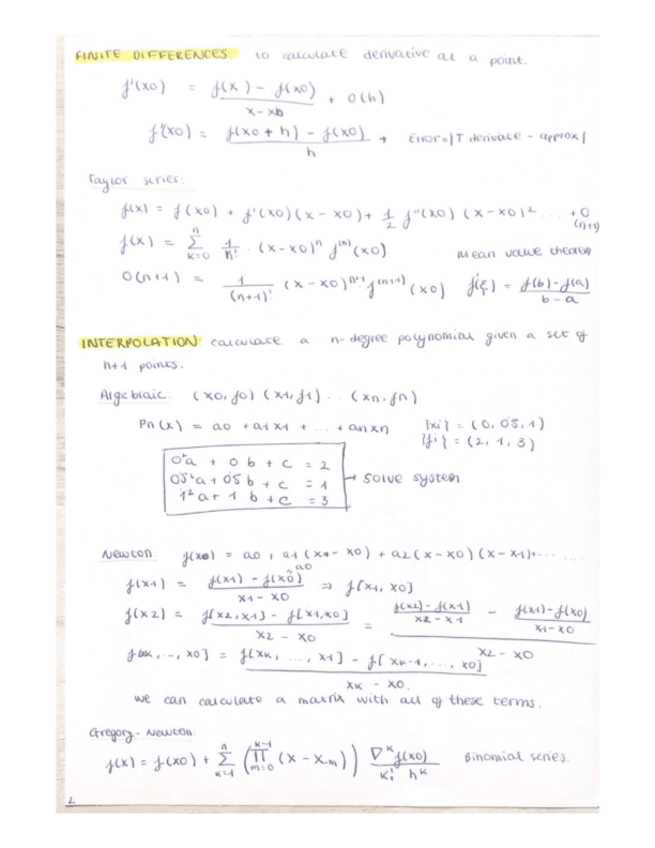 FINITE DIFFERENCES to calculate derivative at a point.
f'(x0) = f(x) - f(x0) / x - x0 + O(h)
f'(x0) = f(x0 + h) - f(x0) / h + Error = |T derivate - approx|
Taylor series:
f(x) = f(x0) + f'(x0)(x - x0) + 1/2 f''(x0) (x - x0)² ... + O (n+1)
f(x) = Σ k=0 n 1/n! · (x-x0)ⁿ f⁽ⁿ⁾(x0) mean value theorem
O(n+1) = 1/(n+1)! (x - x0)ⁿ⁺¹ f⁽ⁿ⁺¹⁾(x0) f'(ξ) = f(b)-f(a) / b - a
INTERPOLATION: calculate a n-degree polynomial given a set of
n+1 points.
Algebraic: (x0, f0) (x1, f1) ... (xn, fn)
Pn(x) = a0 + a1x1 + ... + anxn {xi} = (0, 0'5, 1)
{fi} = (2, 1, 3)
0²a + 0b + c = 2
0'5²a + 0'5b + c = 1 → solve system
1²a + 1b + c = 3
Newton: f(x) = a0 + a1(x - x0) + a2(x - x0)(x - x1) + ...
f(x1) = f(x1) - f(x0) / x1 - x0 ⇒ f[x1, x0]
a0
f(x2) = f[x2, x1] - f[x1, x0] / x2 - x0 = f(x2) - f(x1) / x2 - x1 - f(x1) - f(x0) / x1 - x0 / x2 - x0
f[xk, ..., x0] = f[xk, ..., x1] - f[xk-1, ..., x0] / xk - x0
we can calculate a matrix with all of these terms.
Gregory-Newton:
f(x) = f(x0) + Σ k=1 n (Π m=0 k-1 (x - xm)) ∇ᵏf(x0) / k! hᵏ Binomial series.